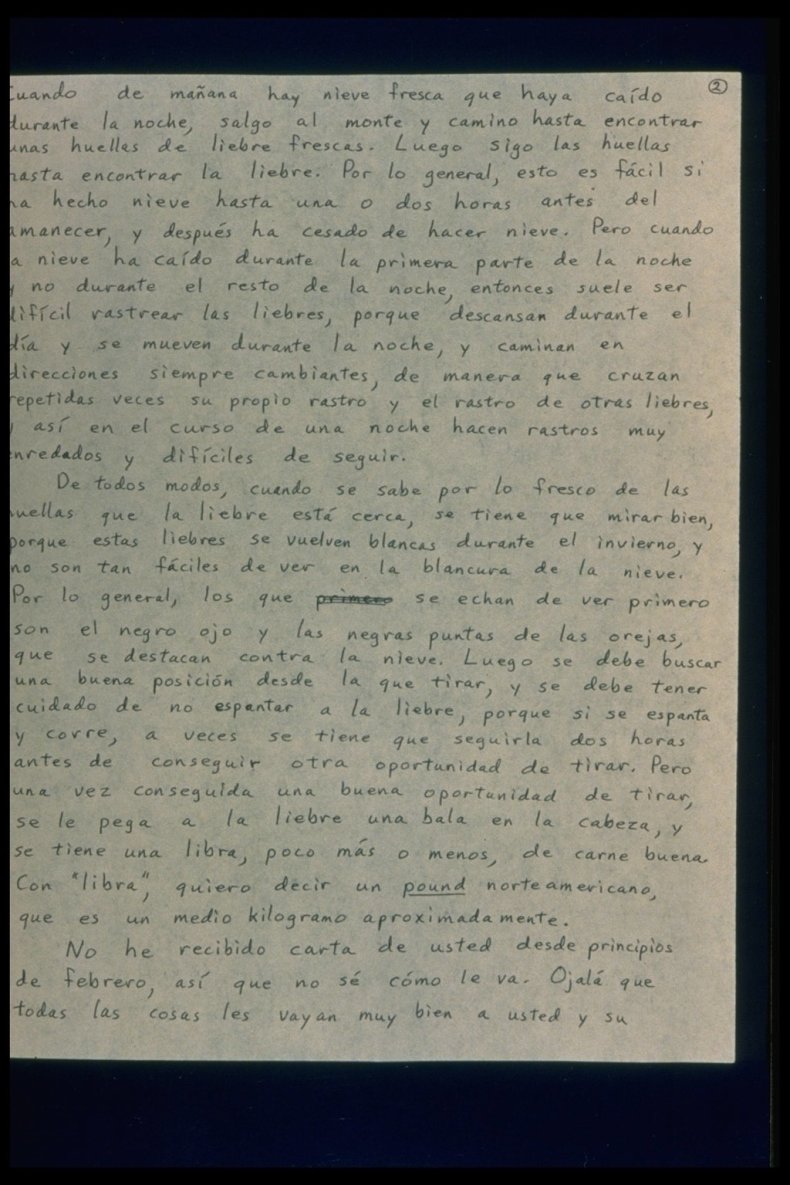 ②
Cuando de mañana hay nieve fresca que haya caído
durante la noche, salgo al monte y camino hasta encontrar
unas huellas de liebre frescas. Luego sigo las huellas
hasta encontrar la liebre. Por lo general, esto es fácil si
ha hecho nieve hasta una o dos horas antes del
amanecer, y después ha cesado de hacer nieve. Pero cuando
la nieve ha caído durante la primera parte de la noche
y no durante el resto de la noche, entonces suele ser
difícil rastrear las liebres, porque descansan durante el
día y se mueven durante la noche, y caminan en
direcciones siempre cambiantes, de manera que cruzan
repetidas veces su propio rastro y el rastro de otras liebres,
y así en el curso de una noche hacen rastros muy
enredados y difíciles de seguir.
De todos modos, cuando se sabe por lo fresco de las
huellas que la liebre está cerca, se tiene que mirar bien,
porque estas liebres se vuelven blancas durante el invierno, y
no son tan fáciles de ver en la blancura de la nieve.
Por lo general, los que primero se echan de ver primero
son el negro ojo y las negras puntas de las orejas,
que se destacan contra la nieve. Luego se debe buscar
una buena posición desde la que tirar, y se debe tener
cuidado de no espantar a la liebre, porque si se espanta
y corre, a veces se tiene que seguirla dos horas
antes de conseguir otra oportunidad de tirar. Pero
una vez conseguida una buena oportunidad de tirar,
se le pega a la liebre una bala en la cabeza, y
se tiene una libra, poco más o menos, de carne buena.
Con "libra", quiero decir un pound norteamericano,
que es un medio kilogramo aproximadamente.
No he recibido carta de usted desde principios
de febrero, así que no sé cómo le va. Ojalá que
todas las cosas les vayan muy bien a usted y su